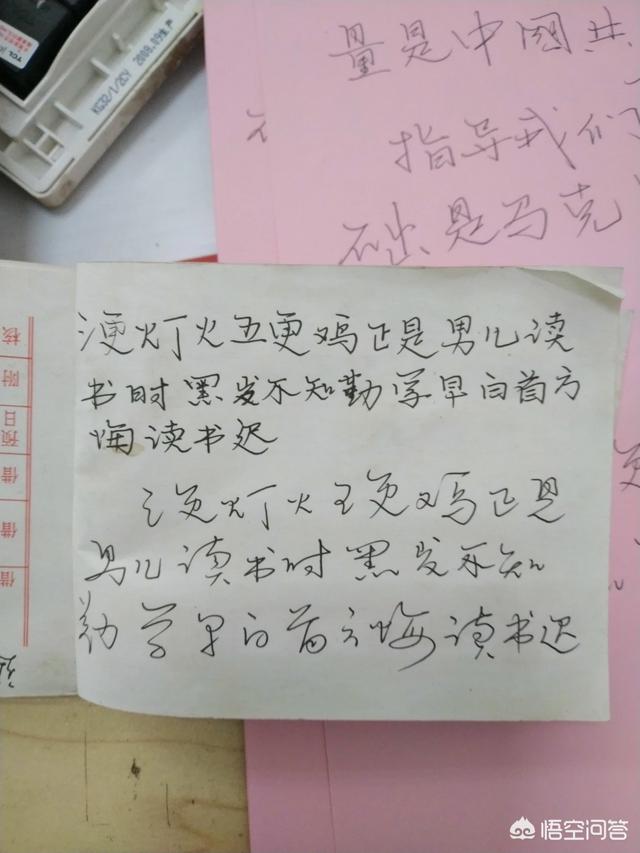 TCL
量是中国共
指导我们
础是马克
三更灯火五更鸡正是男儿读
书时黑发不知勤学早白首方
悔读书迟
三更灯火五更鸡正是
男儿读书时黑发不知
勤学早白首方悔读书迟
核
附
日预
借
借
借
悟空问答